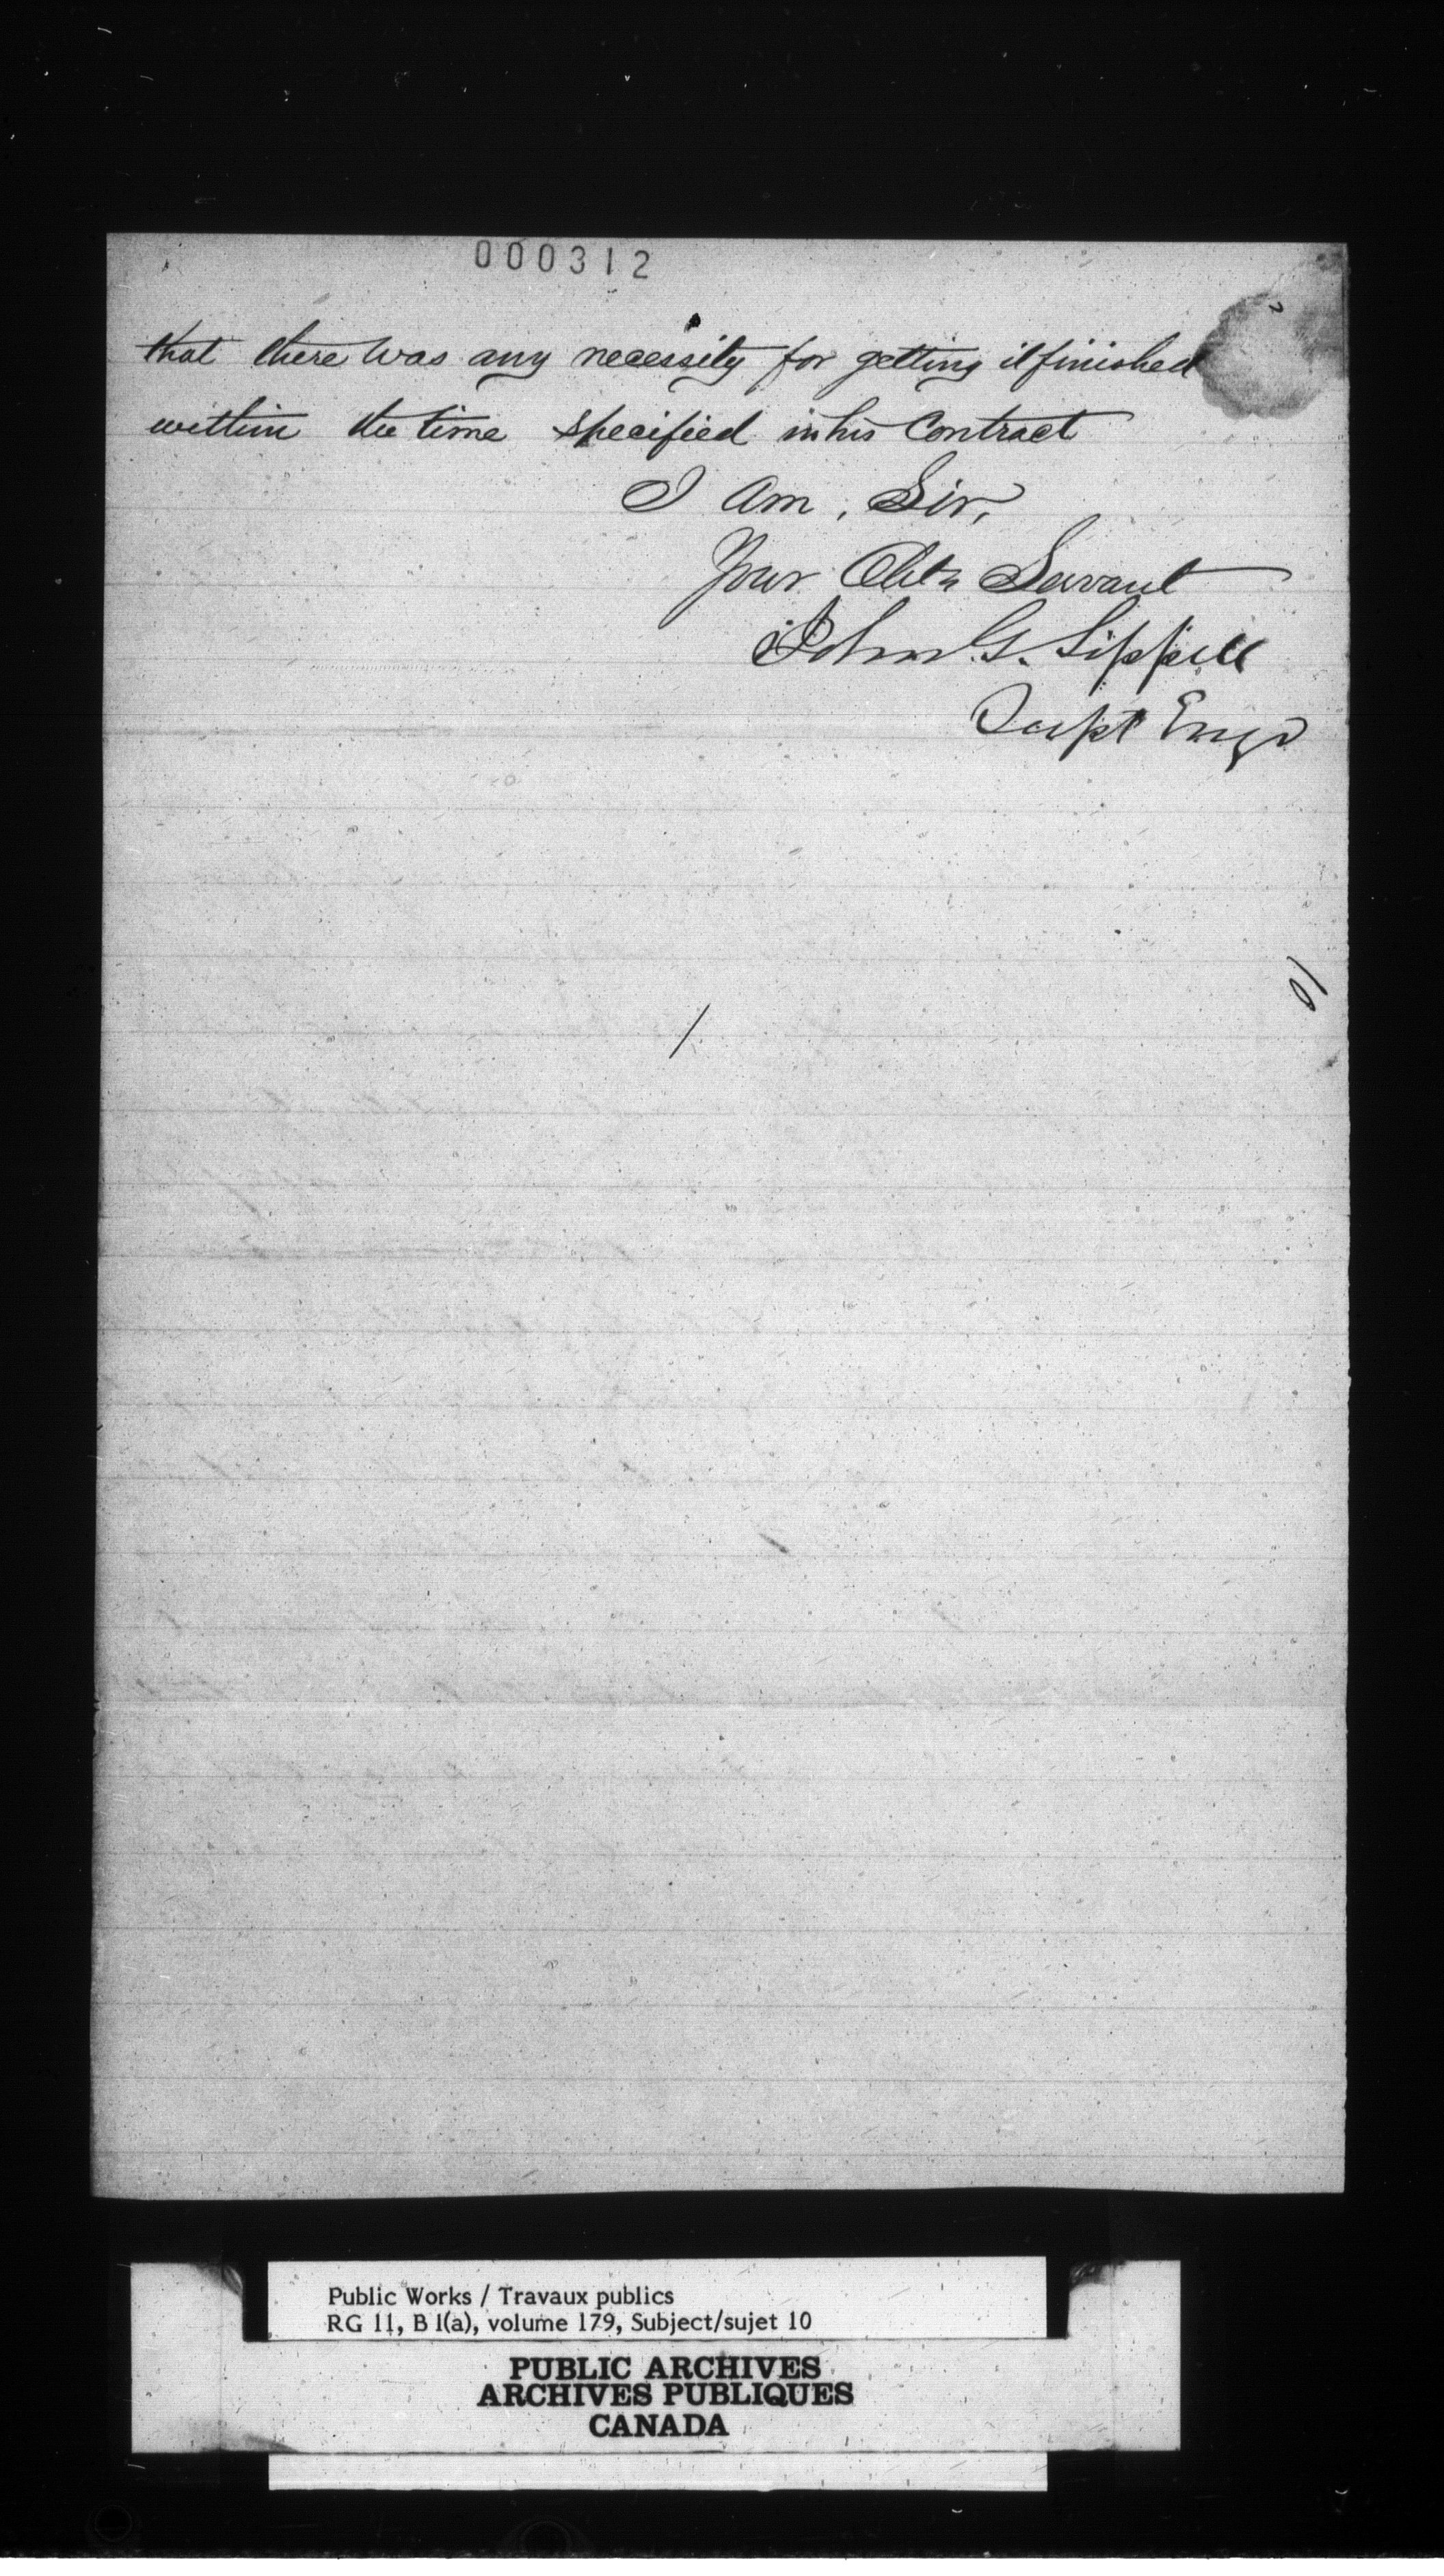 000312
that there was any necessity for getting it finished
within the time specified in his Contract
I am, Sir,
Your Obt Servant
John G. Sippell
Supt Engr
Public Works / Travaux publics
RG 11, B 1(a), volume 179, Subject/sujet 10
PUBLIC ARCHIVES
ARCHIVES PUBLIQUES
CANADA